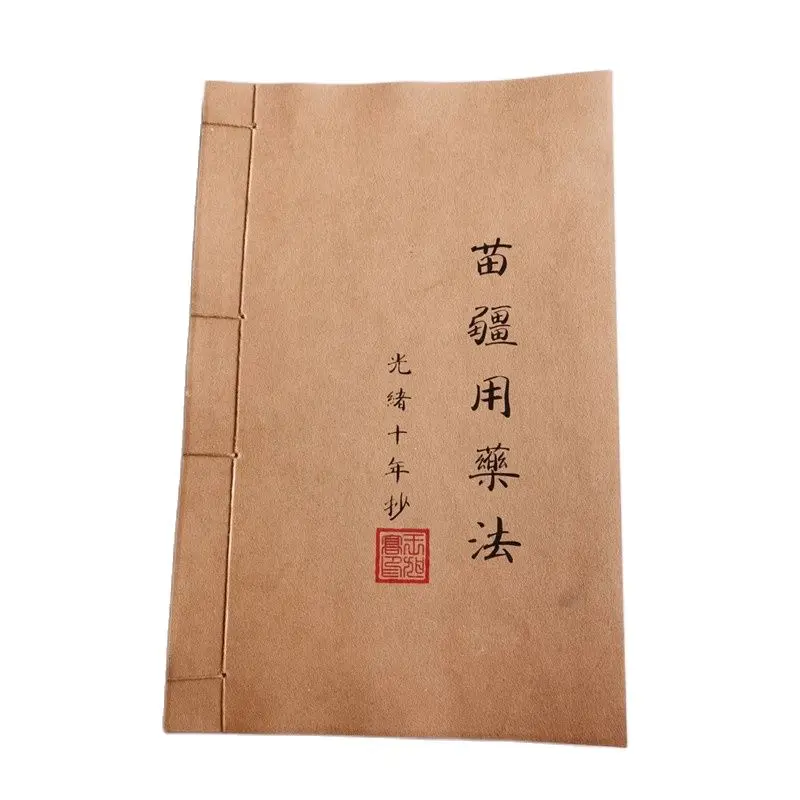 苗疆用藥法
光緒十年抄